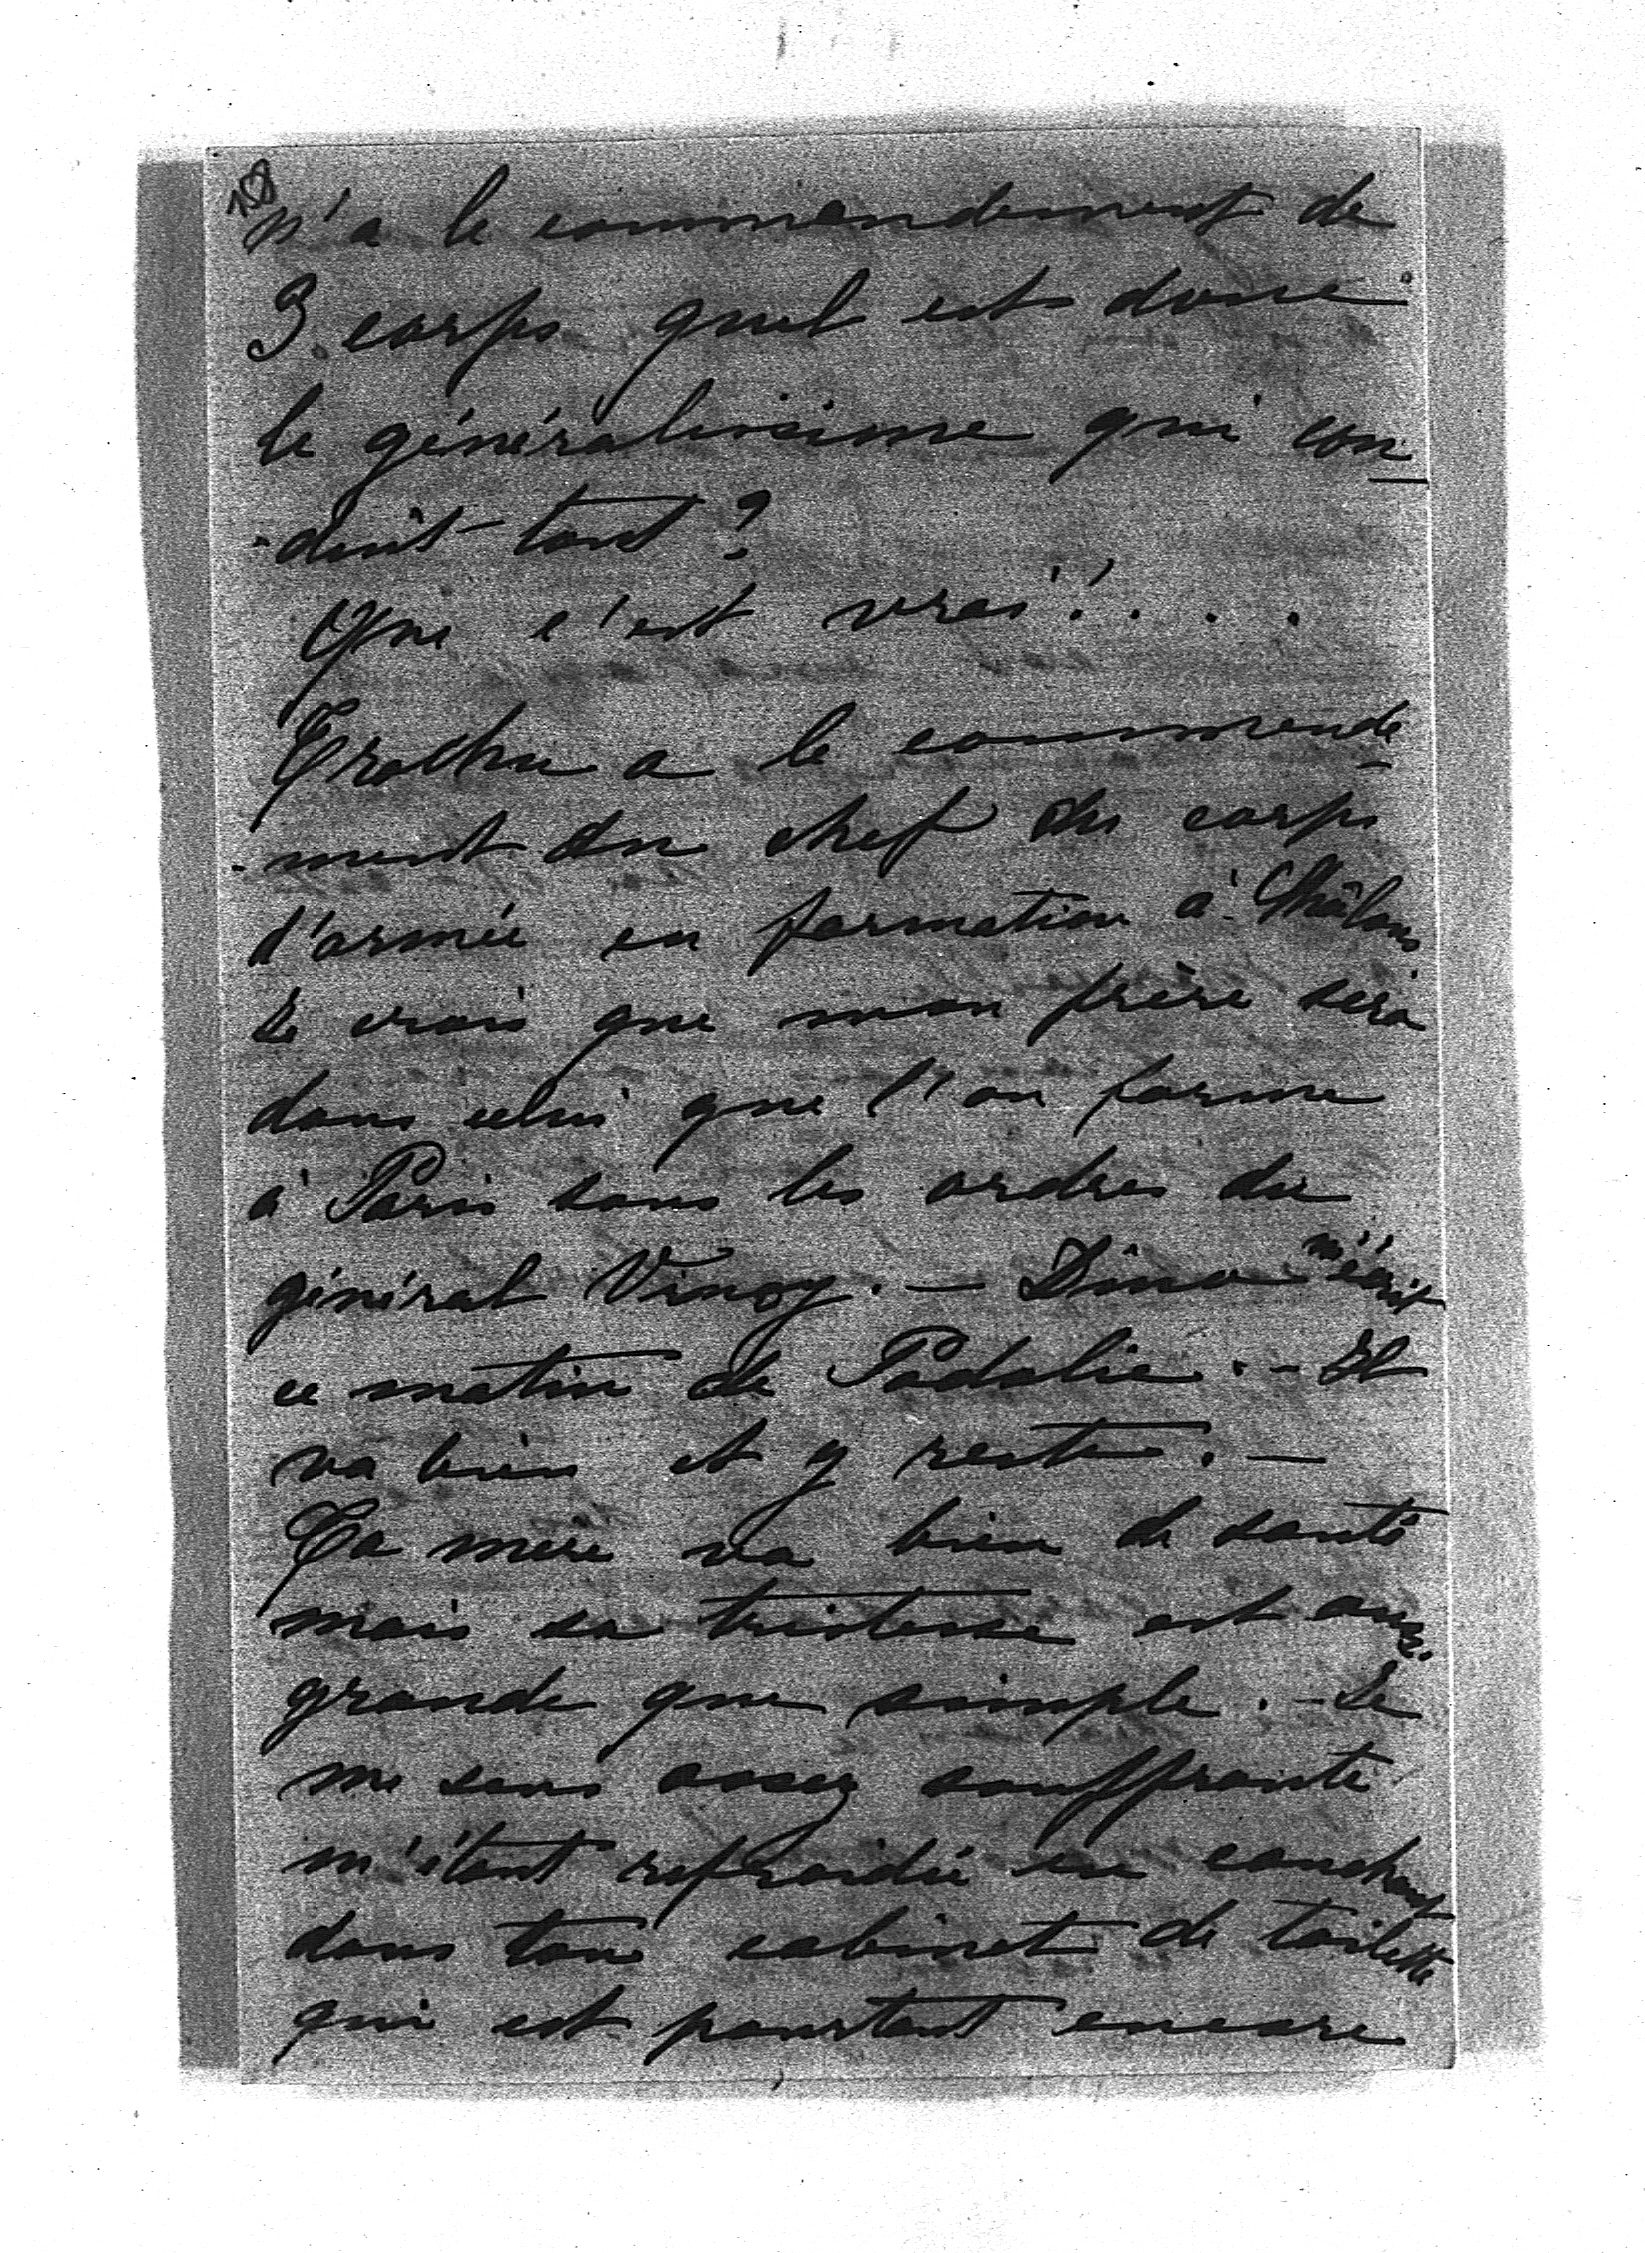 158
n'a le commandement de
3 corps quel est donc
le généralissime qui con
-duit tout ?
Que c'est vrai ! . . .
Trochu a le commande
-ment en chef des corps
d'armée en formation à Châlons
Je crois que mon frère sera
dans celui que l'on forme
à Paris sous les ordres du
général Vinoy. — Dino m'écrit
ce matin de Podolie. – Il
va bien et y reste. —
Ta mère va bien de santé
mais sa tristesse est aussi
grande que simple. – Je
me sens assez souffrante
m'étant refroidie en couchant
dans ton cabinet de toilette
qui est pourtant encore